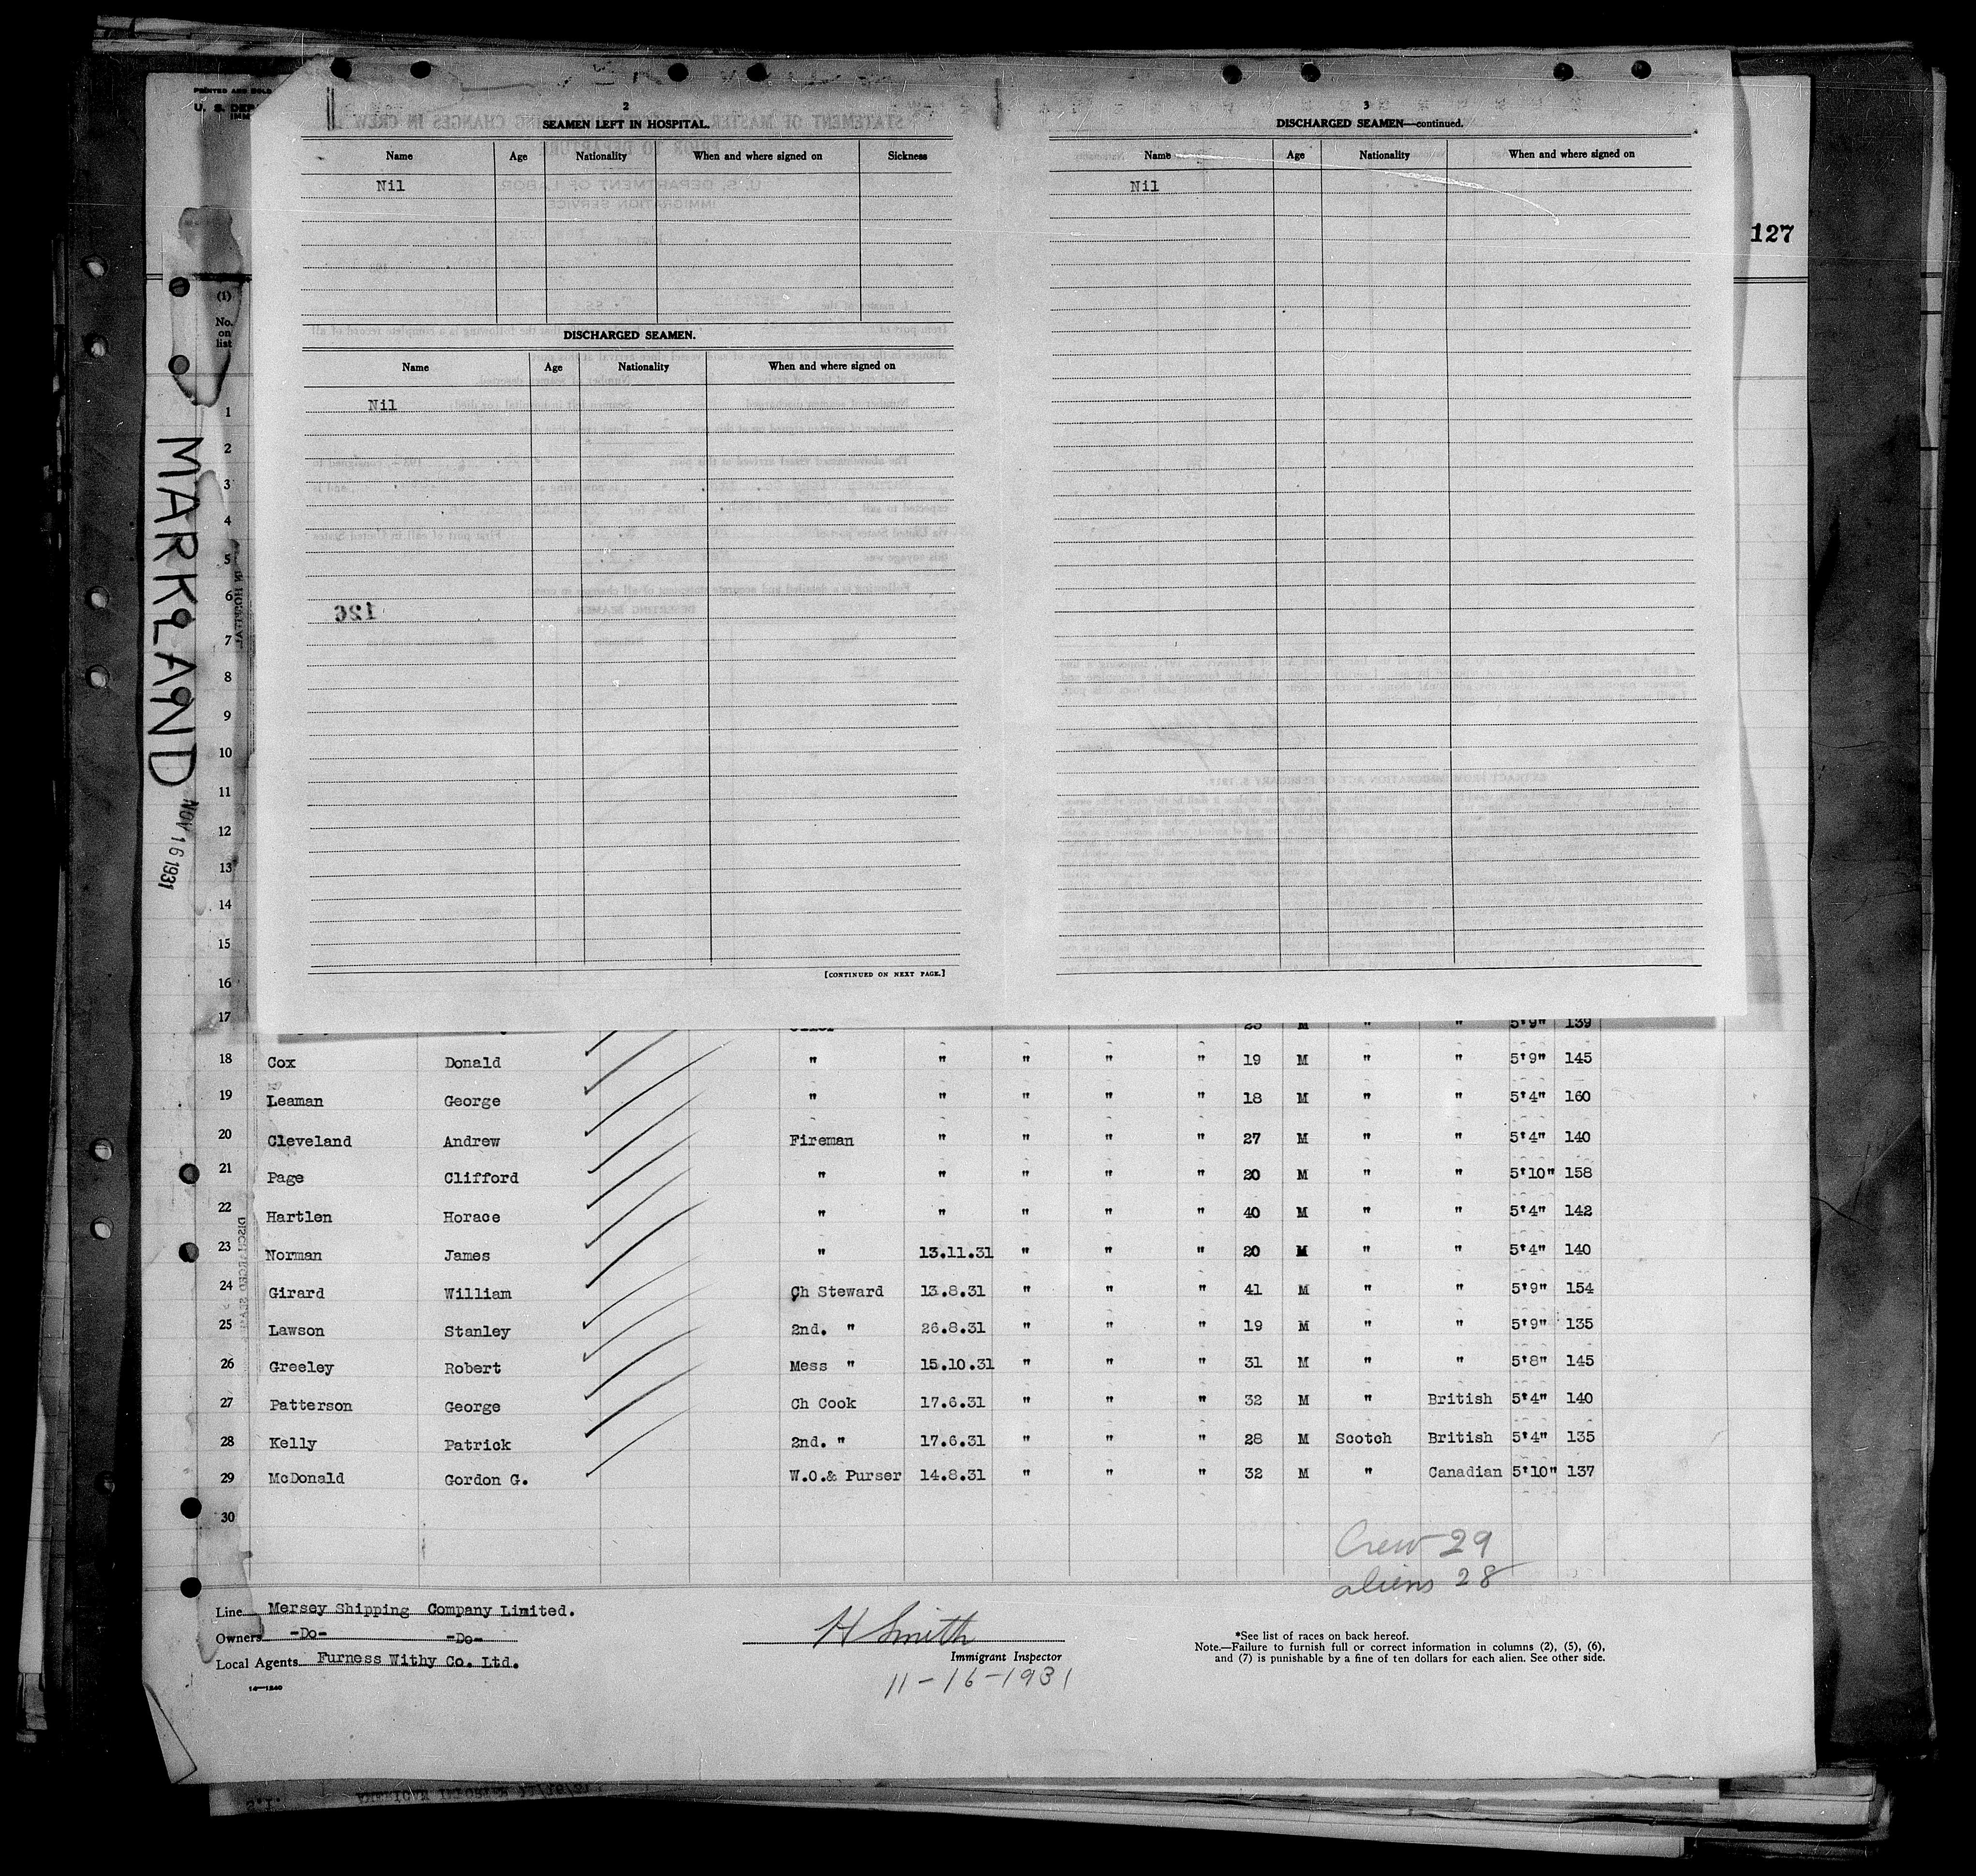 PRINTED AND SOLD
U. S. DEP
IMM
127
2
SEAMEN LEFT IN HOSPITAL.
Name Age Nationality When and where signed on Sickness
Nil
DISCHARGED SEAMEN.
Name Age Nationality When and where signed on
Nil
126
[CONTINUED ON NEXT PAGE.]
3
DISCHARGED SEAMEN—continued.
Name Age Nationality When and where signed on
Nil
(1)
No.
on
list
MARKLAND
NOV 16 1931
1
2
3
4
5
6
7
8
9
10
11
12
13
14
15
16
17 M " " 5'9" 139
18 Cox Donald " " " " " 19 M " " 5'9" 145
19 Leaman George " " " " " 18 M " " 5'4" 160
20 Cleveland Andrew Fireman " " " " 27 M " " 5'4" 140
21 Page Clifford " " " " " 20 M " " 5'10" 158
22 Hartlen Horace " " " " " 40 M " " 5'4" 142
23 Norman James " 13.11.31 " " " 20 M " " 5'4" 140
24 Girard William Ch Steward 13.8.31 " " " 41 M " " 5'9" 154
25 Lawson Stanley 2nd. " 26.8.31 " " " 19 M " " 5'9" 135
26 Greeley Robert Mess " 15.10.31 " " " 31 M " " 5'8" 145
27 Patterson George Ch Cook 17.6.31 " " " 32 M " British 5'4" 140
28 Kelly Patrick 2nd. " 17.6.31 " " " 28 M Scotch British 5'4" 135
29 McDonald Gordon G. W.O.& Purser 14.8.31 " " " 32 M " Canadian 5'10" 137
30
Crew 29
aliens 28
Line Mersey Shipping Company Limited.
Owners -Do- -Do-
Local Agents Furness Withy Co. Ltd.
14—1240
H Smith
Immigrant Inspector
11-16-1931
*See list of races on back hereof.
Note.—Failure to furnish full or correct information in columns (2), (5), (6),
and (7) is punishable by a fine of ten dollars for each alien. See other side.